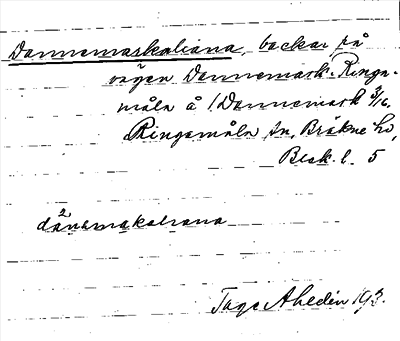 Dannemarkaliana, backar, på
vägen Dannemark - Ringa-
måla å 1 Dannemark 3/16,
Ringamåla sn, Bräkne hd,
Blek. l. 5
dán²emakaliana
Tage Ahldén 193.